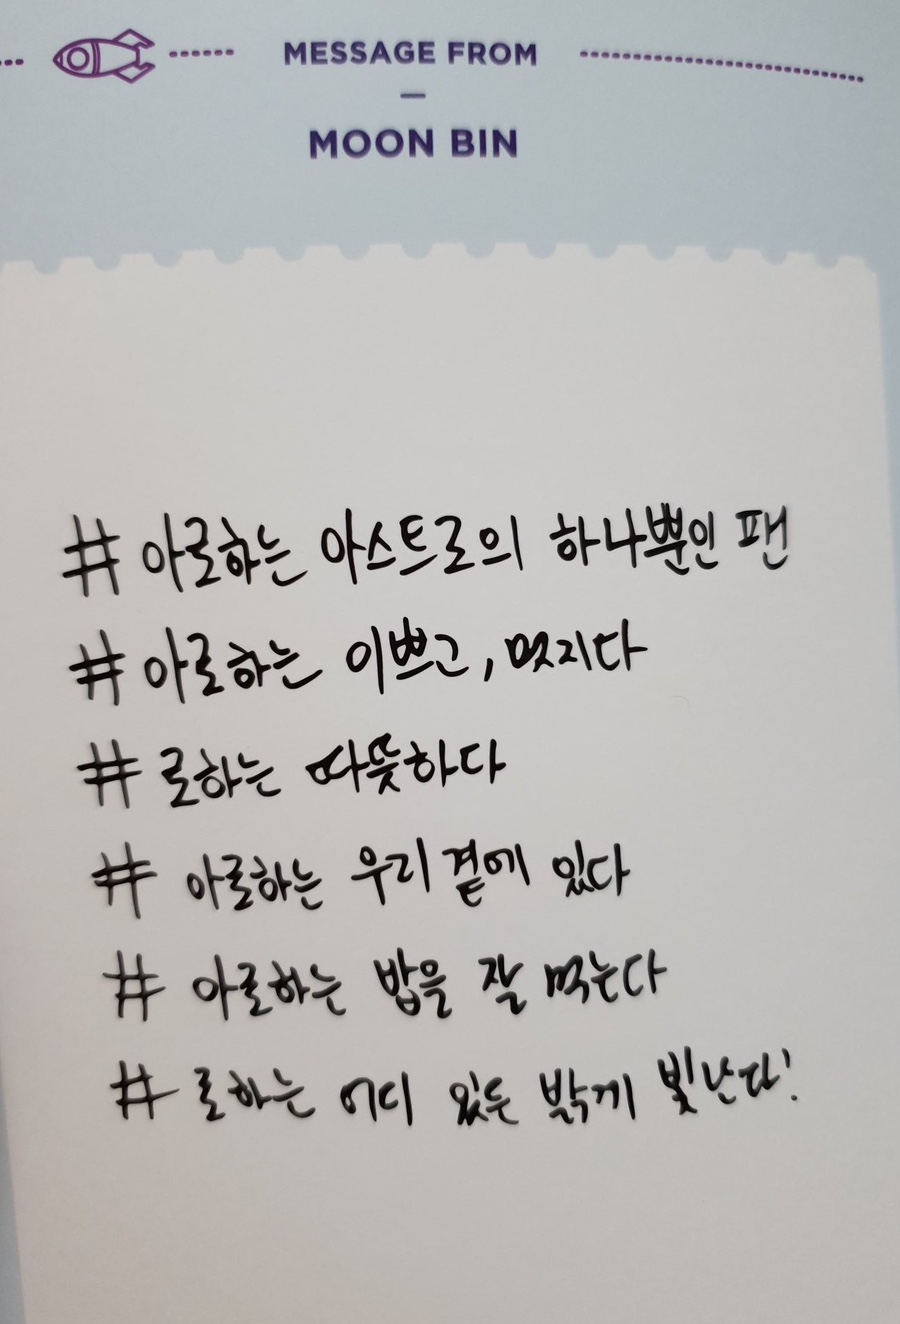 MESSAGE FROM
MOON BIN
# 아로하는 아스트로의 하나뿐인 팬
# 아로하는 이쁘고, 멋지다
# 로하는 따뜻하다
# 아로하는 우리 곁에 있다
# 아로하는 밥을 잘 먹는다
# 로하는 어디 있든 밝게 빛난다!